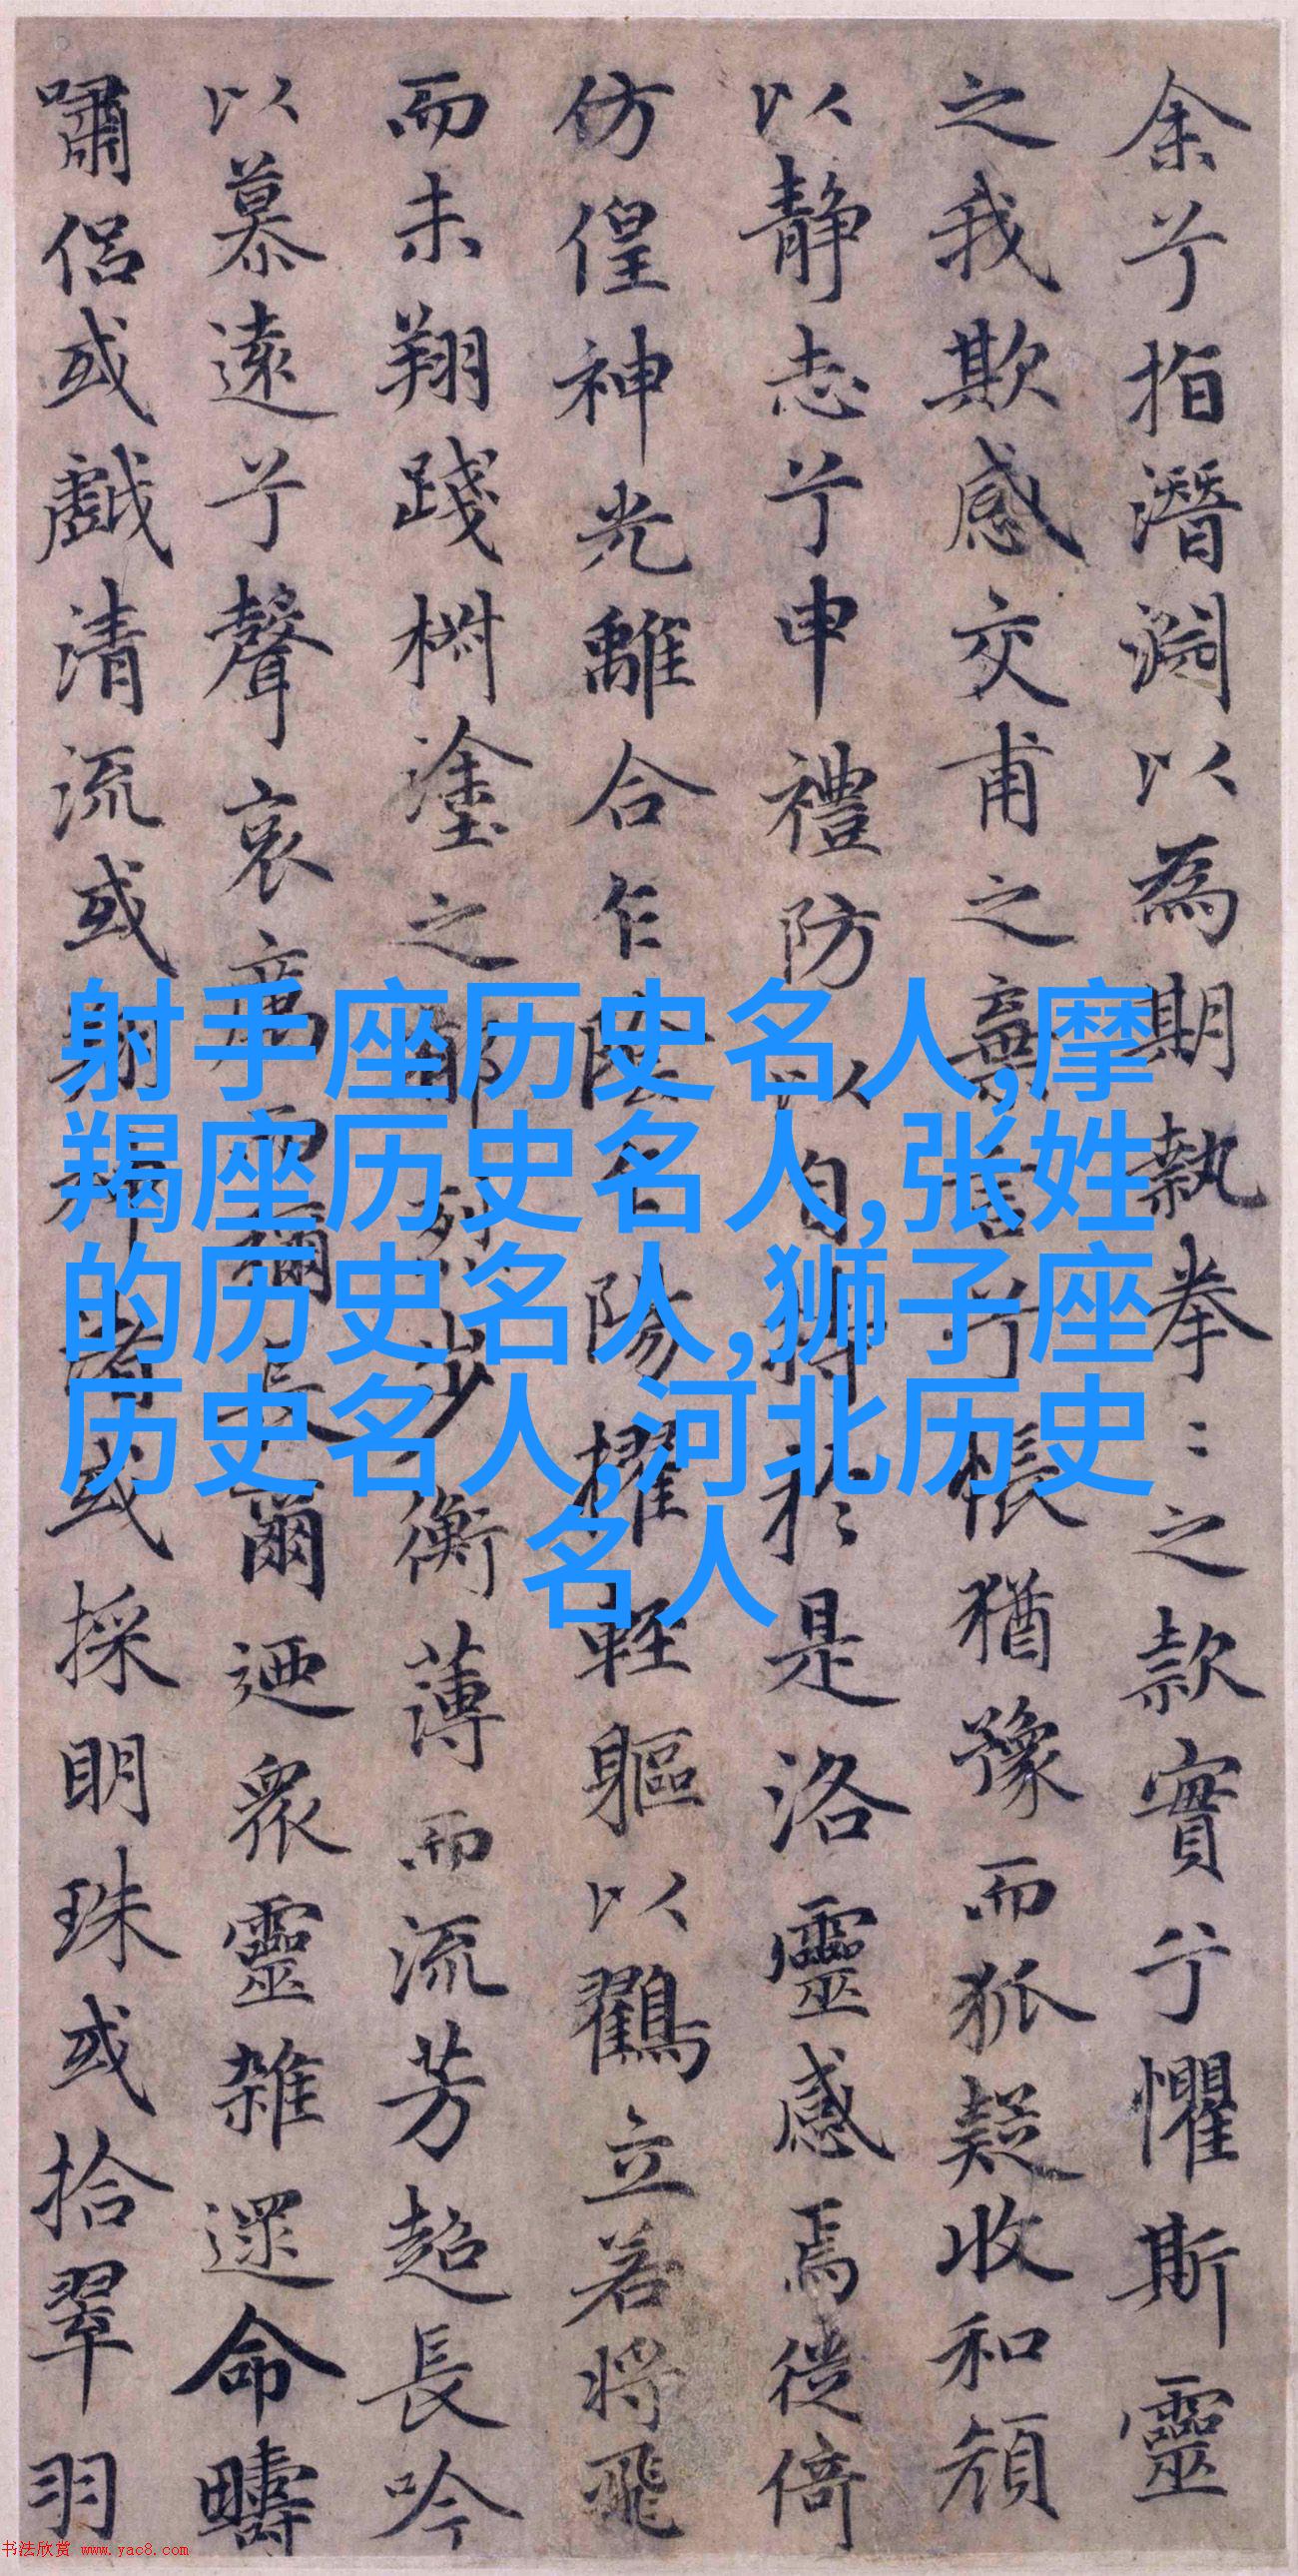 余兮指潛淵以為期執拳〻之款實兮懼斯靈
之我欺感交甫之棄言兮悵猶豫而狐疑收和顏
以靜志兮申禮防以自持於是洛靈感焉徙倚
仿偟神光離合乍陰乍陽擢輕軀以鶴立若將飛
而未翔踐椒塗之郁烈步衡薄而流芳超長吟
以慕遠兮聲哀厲而彌長爾迺眾靈雜遝命疇
嘯侶或戲清流或翔神渚或採明珠或拾翠羽
射手座历史名人,摩
羯座历史名人,张姓
的历史名人,狮子座
历史名人,河北历史
名人
书法欣赏 www.yac8.com